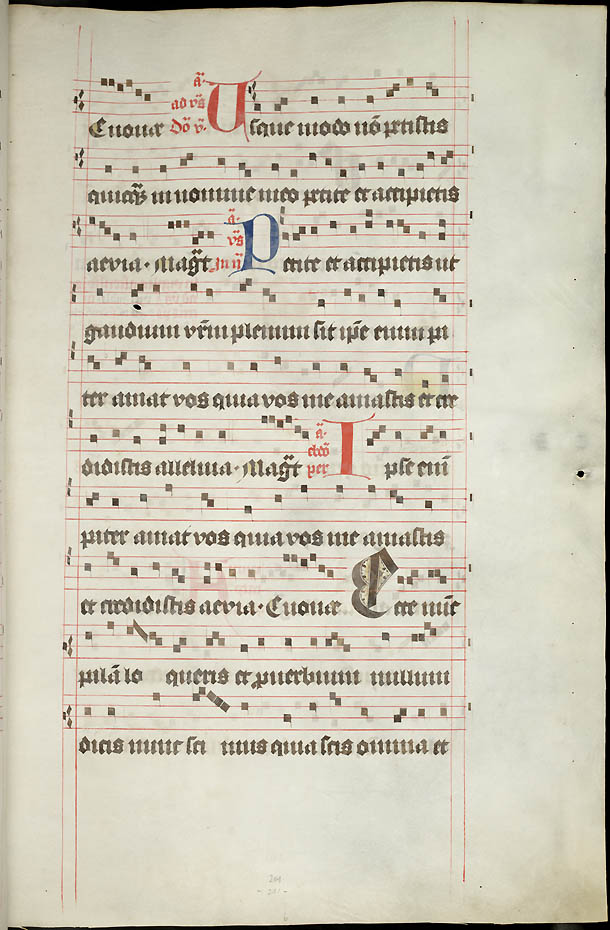 Euouae ad v̄s a̅. Dō v̄. Usque modo nō petistis
quicq̄ȝ in nomine meo petite et accipietis
aevia. Mag̅t In ij v̄s a̅. Petite et accipietis ut
gaudium vr̄m plenum sit ip̄e enim pa
ter amat vos quia vos me amastis et cre
didistis alleluia. Mag̅t per a̅. Ipse eni̅
pater amat vos quia vos me amastis
et credidistis aevia. Euouae Ecce nu̅c
pala̅ lo queris et ꝓuerbium nullum
dicis nunc sci mus quia scis omnia et
201